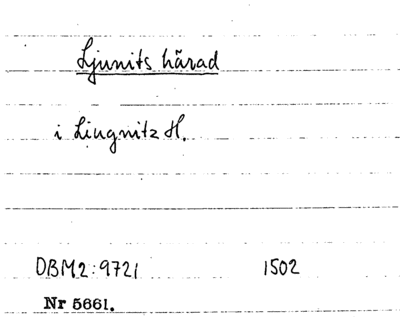 Ljunits härad
i Liugnitz H.
DBM2:9721 1502
Nr 5661.